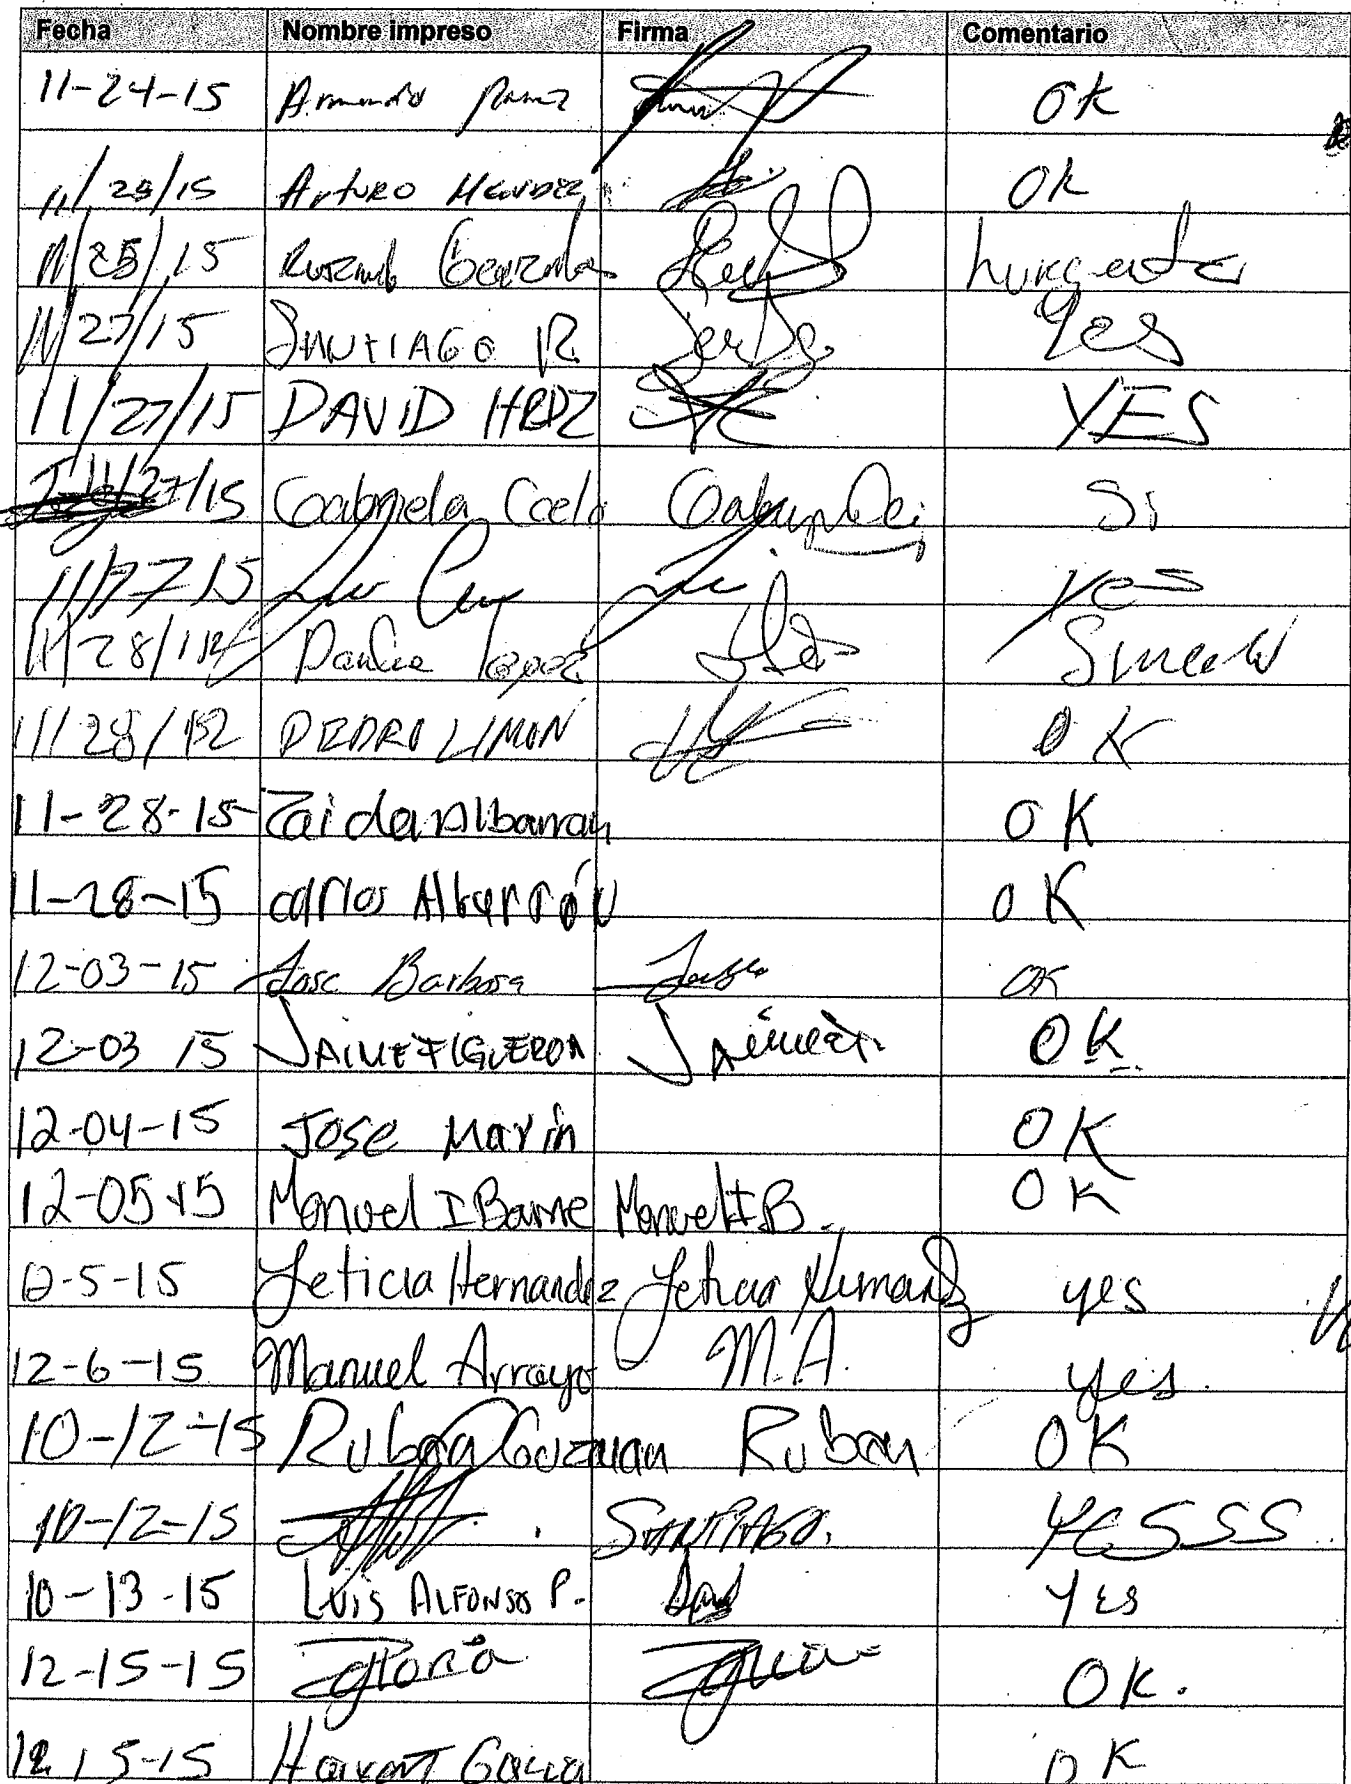 Fecha Nombre impreso Firma Comentario
11-24-15 OK
11/25/15 Arturo Mendez OK
11/25/15
11/27/15 SANTIAGO R. Yes
11/27/15 DAVID HRDZ YES
11/27/15 Gabriela Si
11/27 15 yes
11/28/15 Lopez
11/28/ PEDRO LIMON OK
11-28-15 Zaida Albarran OK
11-28-15 carlos Albarrán OK
12-03-15 Jose Barbosa Jose OK
12-03 15 JAIME FIGUEROA OK.
12-04-15 Jose Marin OK
12-05-15 Manuel I Barre Manuel I B. OK
12-5-15 Leticia Hernandez Leticia Hernandez yes
12-6-15 Manuel Arroyo M.A. yes.
10-12-15 Ruben Guzman Ruben OK
10-12-15 SANTIAGO. YESSS
10-13-15 LUIS ALFONSO P. Yes
12-15-15 Gloria OK.
12 15-15 Garcia OK